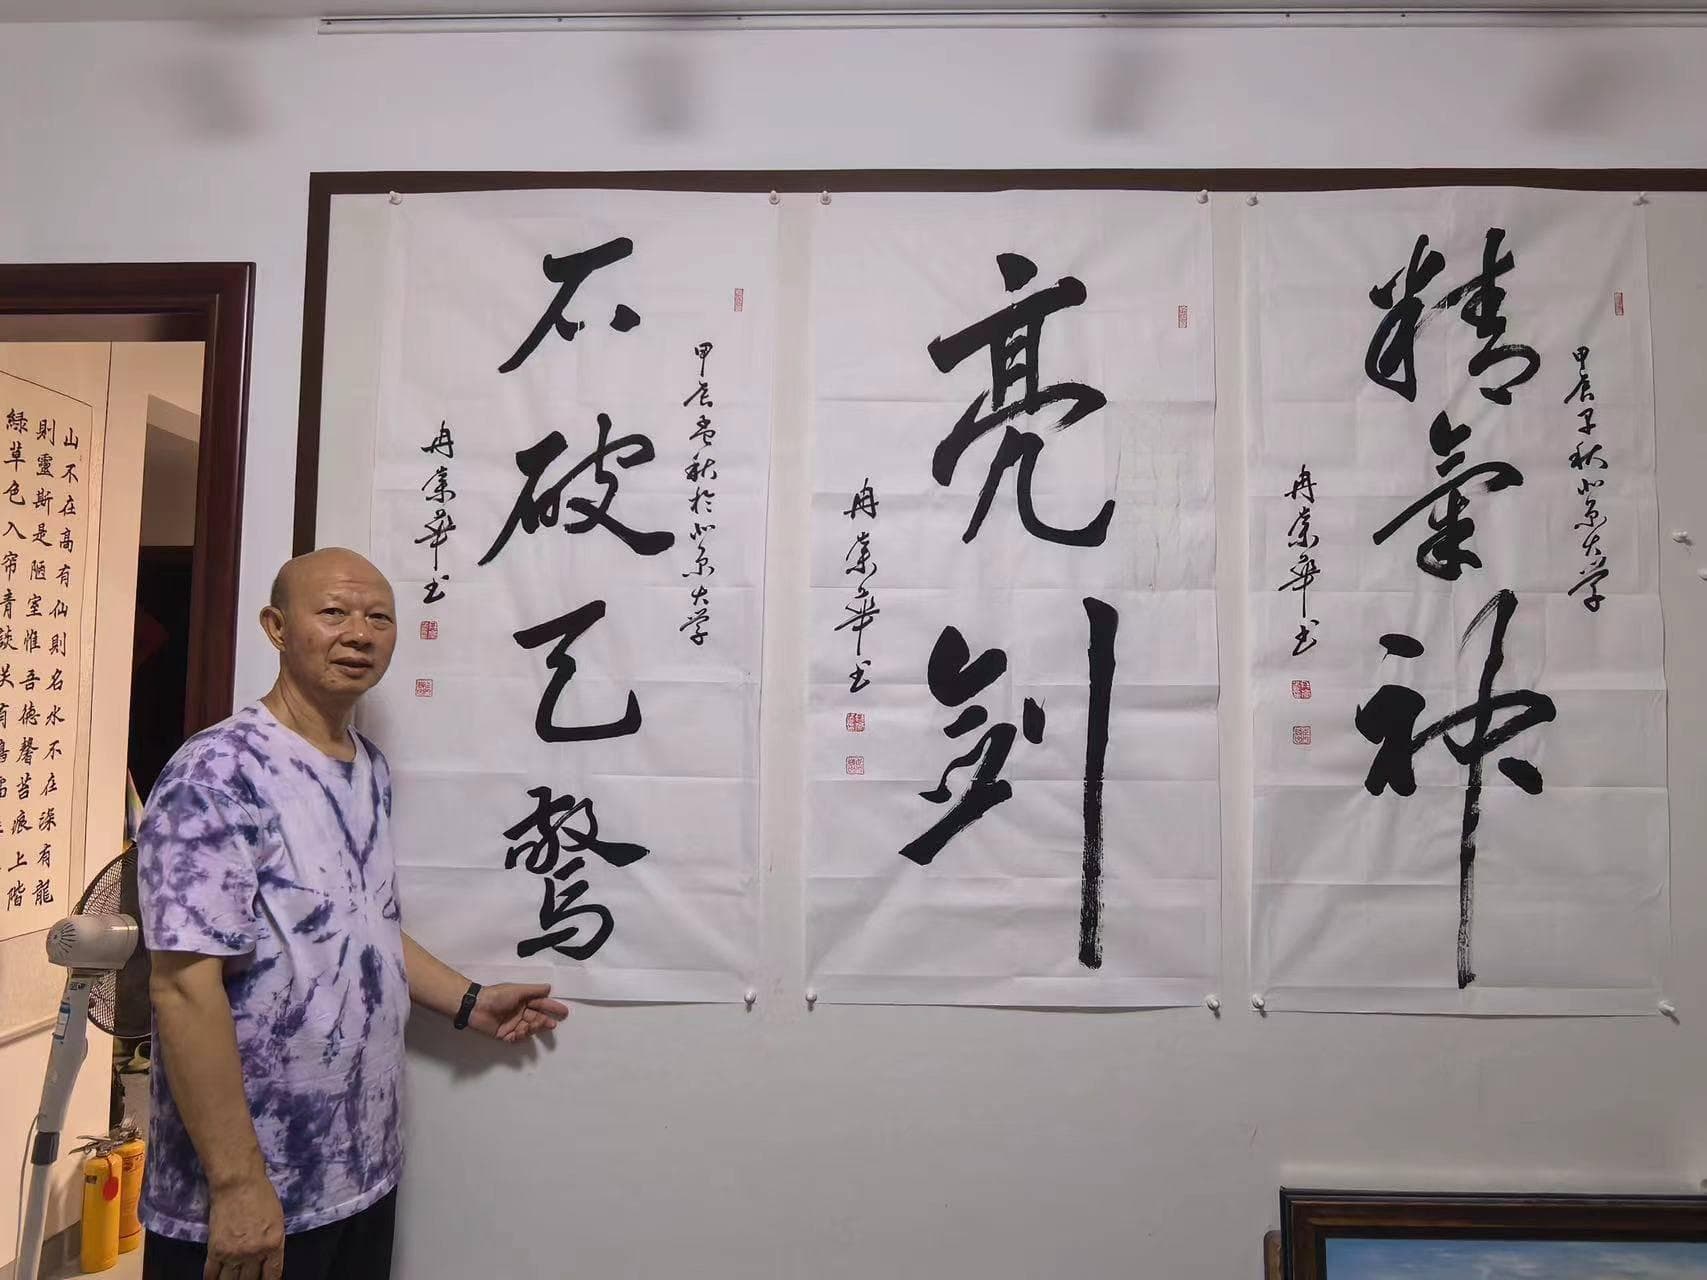 精氣神
甲辰早秋北京大学
冉崇華书
亮剑
冉崇華书
石破天驚
甲辰孟秋於北京大学
冉崇華书
山不在高有仙則名水不在深有龍
則靈斯是陋室惟吾德馨苔痕上階
緑草色入帘青談笑有鴻儒